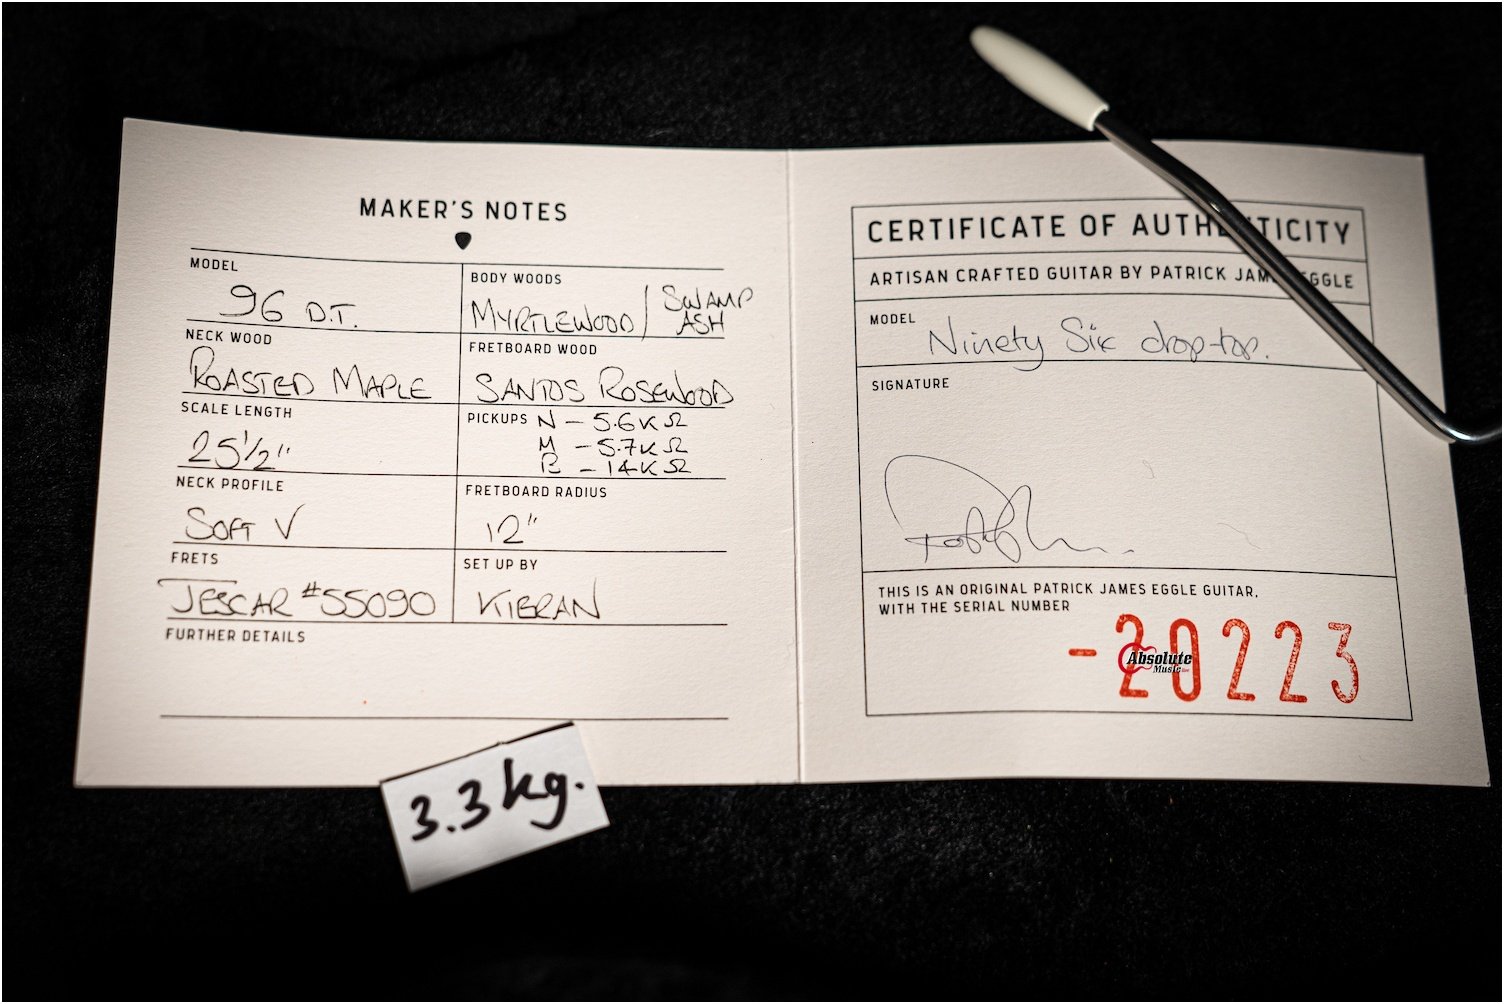 MAKER'S NOTES
MODEL
96 D.T.
BODY WOODS
MYRTLEWOOD / SWAMP ASH
NECK WOOD
ROASTED MAPLE
FRETBOARD WOOD
SANTOS ROSEWOOD
SCALE LENGTH
25 1/2"
PICKUPS N - 5.6K Ω
M - 5.7K Ω
B - 14K Ω
NECK PROFILE
SOFT V
FRETBOARD RADIUS
12"
FRETS
JESCAR #55090
SET UP BY
KIERAN
FURTHER DETAILS
3.3kg.
CERTIFICATE OF AUTHENTICITY
ARTISAN CRAFTED GUITAR BY PATRICK JAMES EGGLE
MODEL
Ninety Six drop-top.
SIGNATURE
THIS IS AN ORIGINAL PATRICK JAMES EGGLE GUITAR,
WITH THE SERIAL NUMBER
-20223
Absolute
Music